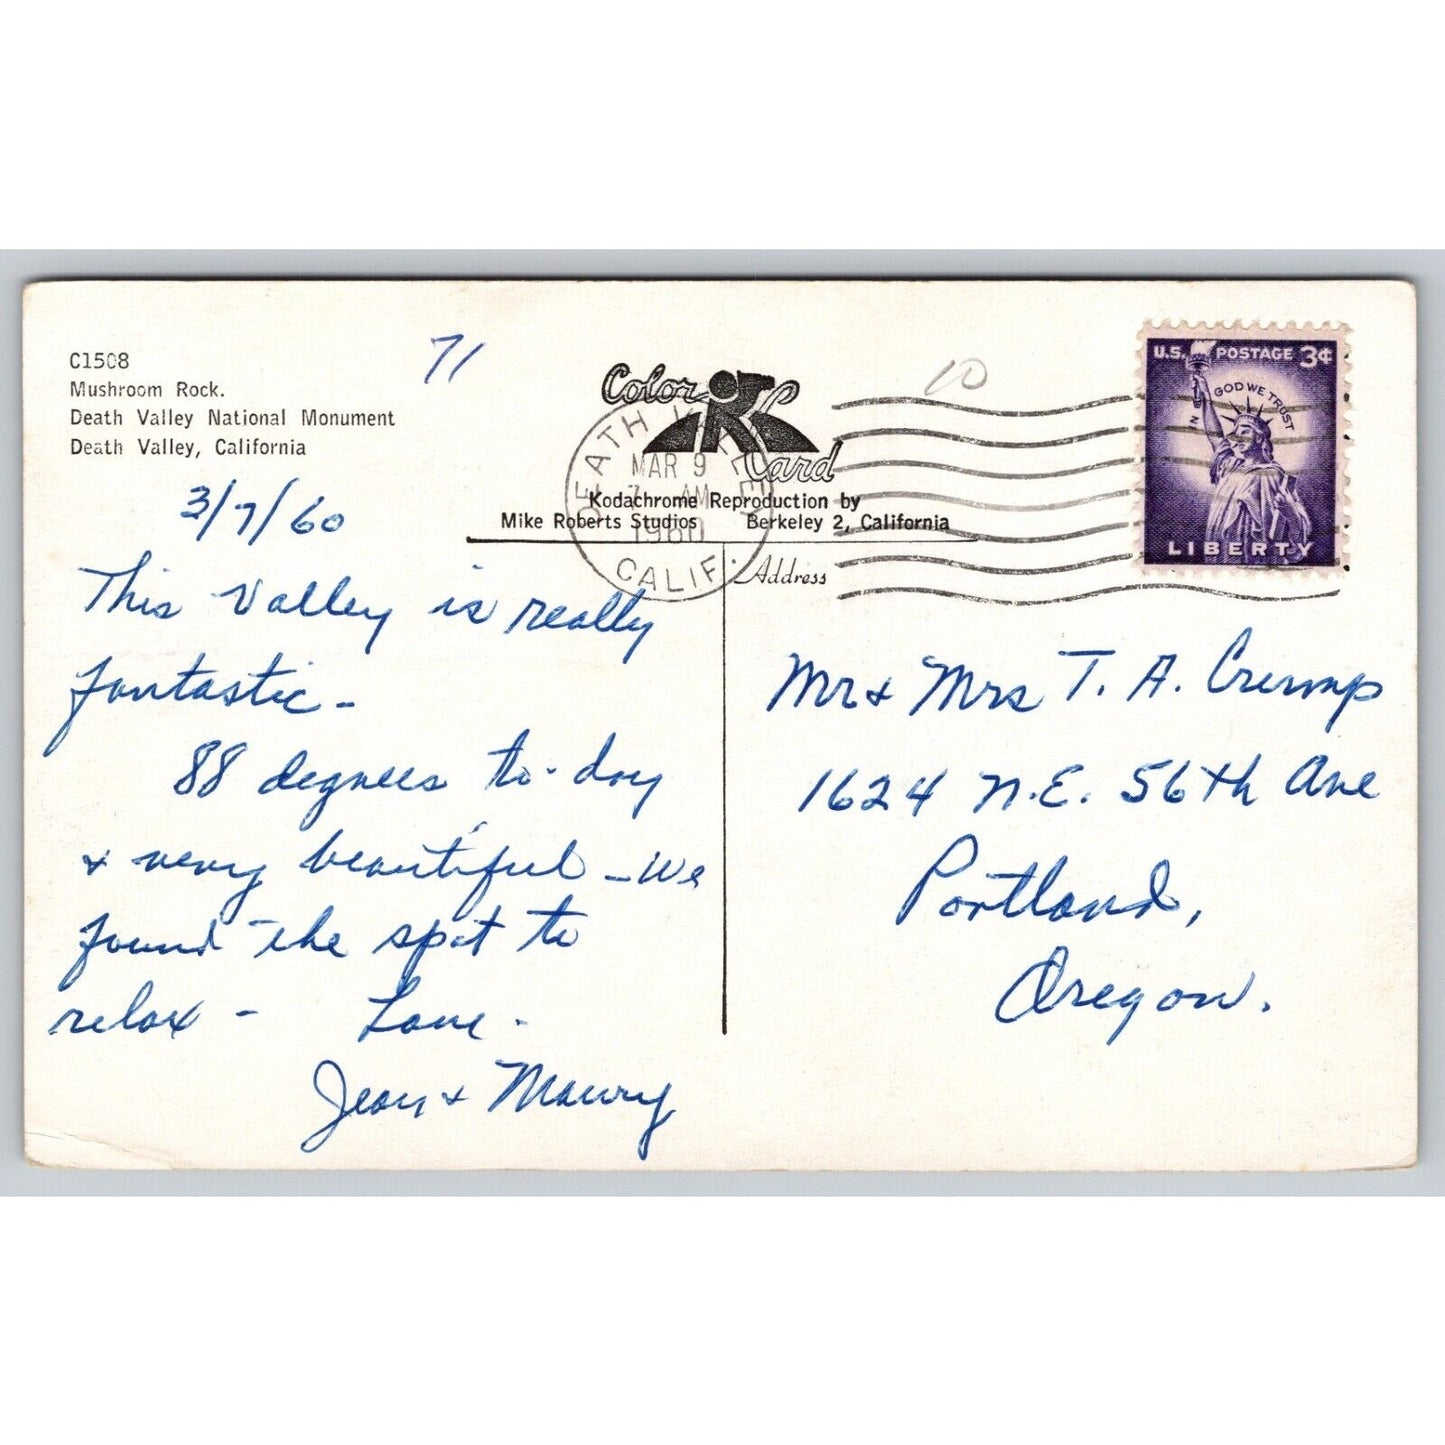 C1508
Mushroom Rock.
Death Valley National Monument
Death Valley, California
71
10
Color
Card
Kodachrome Reproduction by
Mike Roberts Studios Berkeley 2, California
DEATH VALLEY
MAR 9
7 AM
1960
CALIF.
U.S. POSTAGE 3¢
IN GOD WE TRUST
LIBERTY
3/7/60
This Valley is really
fantastic -
88 degrees to-day
& very beautiful - we
found the spot to
relax - Love.
Jean & Maury
Address
Mr & Mrs T. A. Crump
1624 N.E. 56th Ave
Portland,
Oregon.